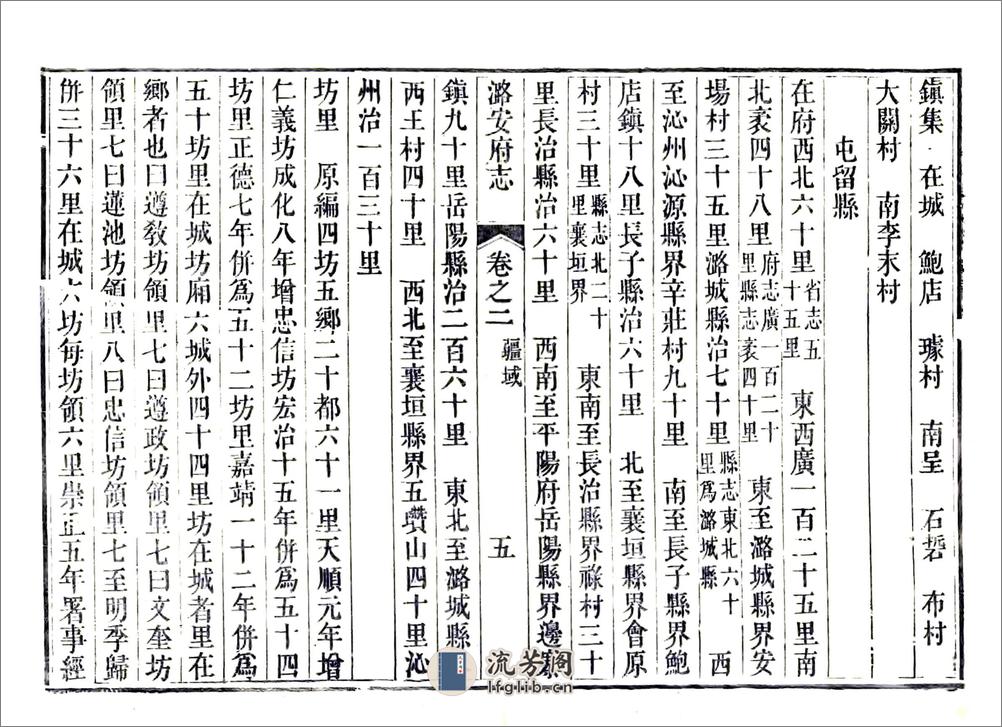 鎮集 在城 鮑店 璩村 南呈 石硰 布村
大關村 南李末村
屯留縣
在府西北六十里省志五十五里 東西廣一百二十五里南
北袤四十八里府志廣一百二十里縣志袤四十里 東至潞城縣界安
場村三十五里潞城縣治七十里縣志東北六十里爲潞城縣 西
至沁州沁源縣界辛莊村九十里 南至長子縣界鮑
店鎮十八里長子縣治六十里 北至襄垣縣界會原
村三十里縣志北二十里襄垣界 東南至長治縣界祿村三十
里長治縣治六十里 西南至平陽府岳陽縣界邊寨
潞安府志 卷之二 疆域 五
鎮九十里岳陽縣治二百六十里 東北至潞城縣
西王村四十里 西北至襄垣縣界五㘸山四十里沁
州治一百三十里
坊里 原編四坊五鄉二十都六十一里天順元年增
仁義坊成化八年增忠信坊宏治十五年併爲五十四
坊里正德七年併爲五十二坊里嘉靖一十二年併爲
五十坊里在城坊廂六城外四十四里坊在城者里在
鄉者也曰遵敎坊領里七曰遵政坊領里七曰文奎坊
領里七曰蓮池坊領里八曰忠信坊領里七至明季歸
併三十六里在城六坊每坊領六里崇正五年署事經
流芳阁
lfglib.cn